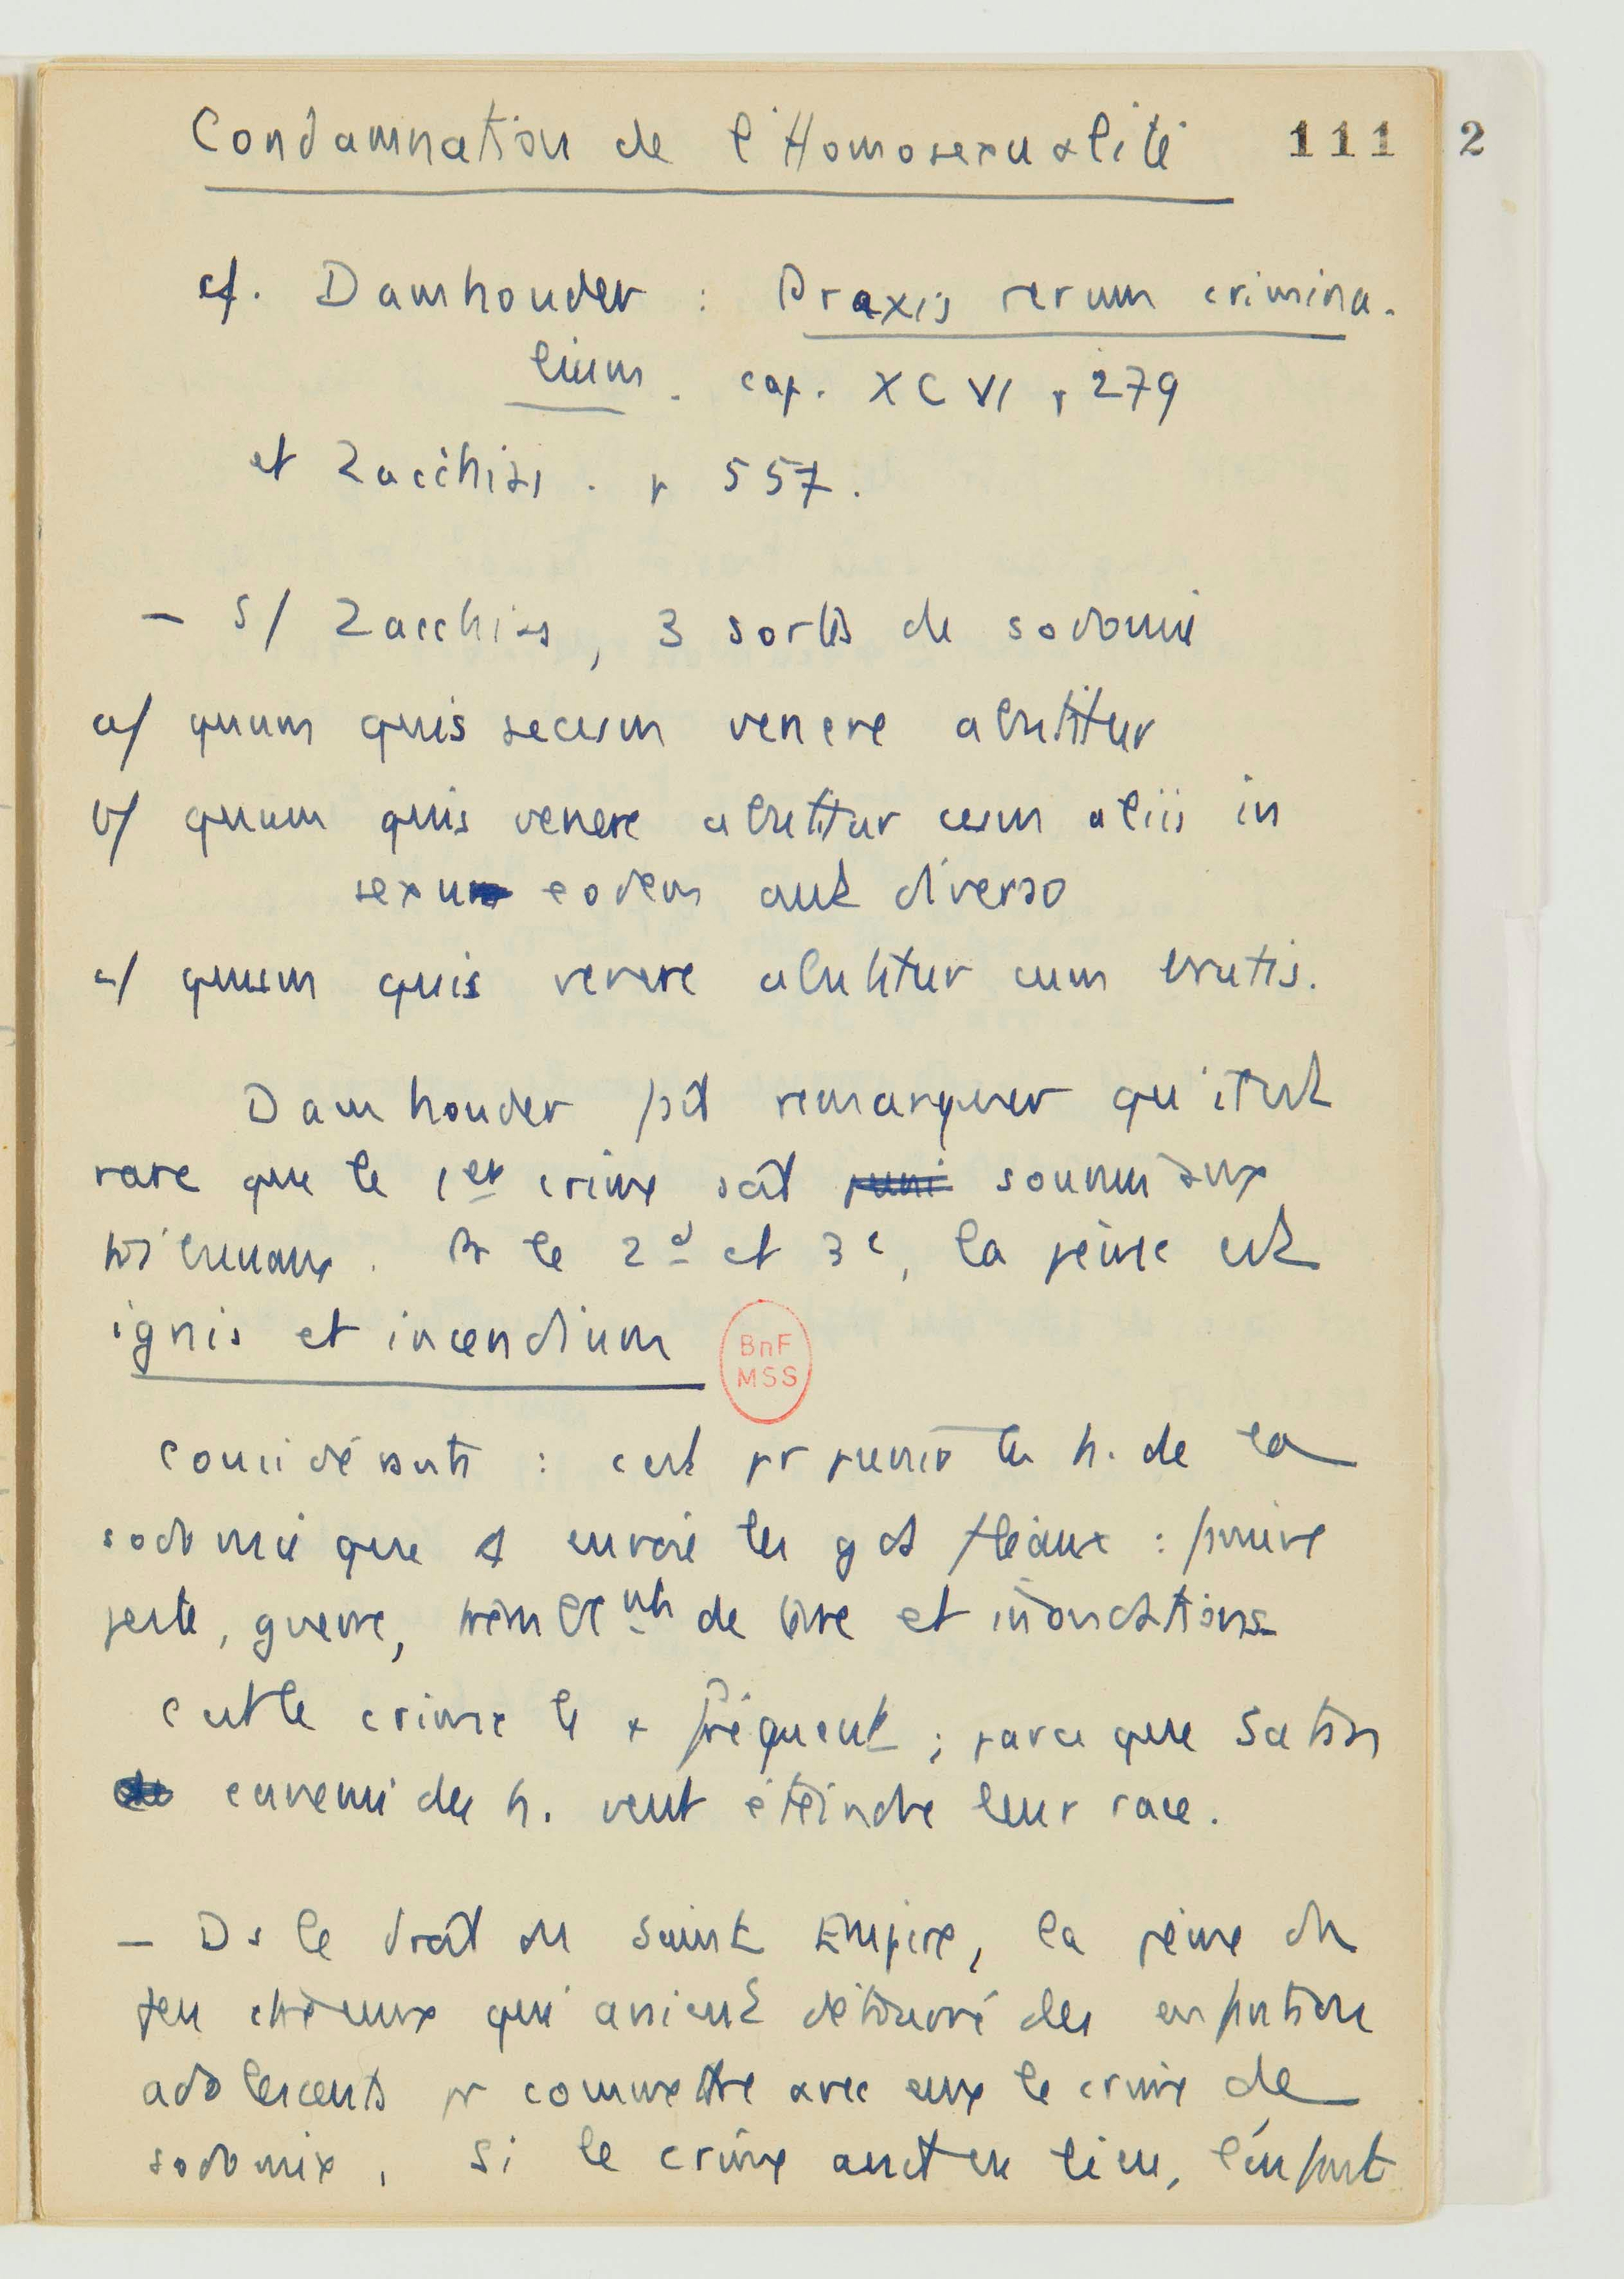 Condamnation de l'Homosexualité
111 2
cf. Damhouder : Praxis rerum crimina-
lium. cap. XCVI p 279
et Zacchias . p 557.
— S/ Zacchias, 3 sortes de sodomie
a/ quum quis secum venere abutitur
b/ quum quis venere abutitur cum aliis in
sexu eodem aut diverso
c/ quum quis venere abutitur cum brutis.
Damhouder fait remarquer qu'il est
rare que le 1er crime soit puni soumis aux
tribunaux. Pr le 2d et 3e, la peine est
ignis et incendium
BnF
MSS
Considérants : c'est pr punir les h. de la
sodomie que envoie les gds fléaux : famine
peste, guerre, tremblemnts de terre et inondations
C'est le crime le + fréquent ; parce que Satan
ennemi des h. veut éteindre leur race.
— Ds le droit du Saint Empire, la peine du
feu à ceux qui avaient détourné des enfants ou
adolescents pr commettre avec eux le crime de
sodomie. Si le crime avait eu lieu, l'enfant